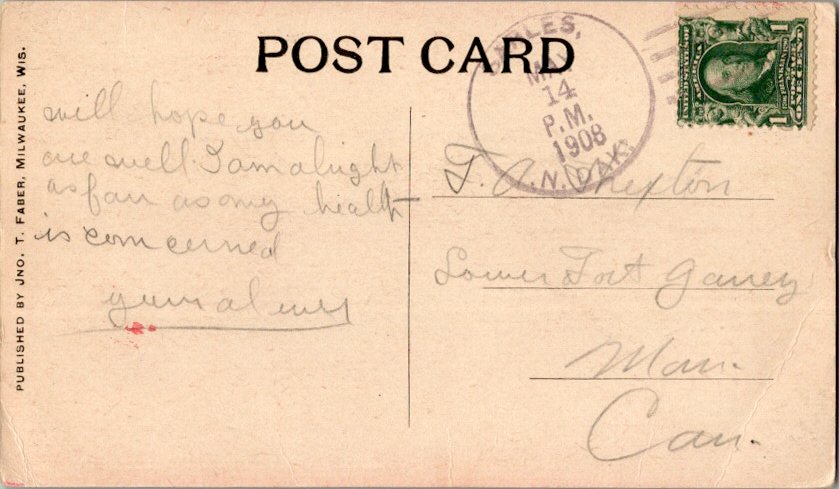 POST CARD
PUBLISHED BY JNO. T. FABER, MILWAUKEE, WIS.
MAY
14
P.M.
1908
N. DAK.
1 1
will hope you
are well I am alright
as far as my health
is concerned
Lower Fort Garrey
Man.
Can.